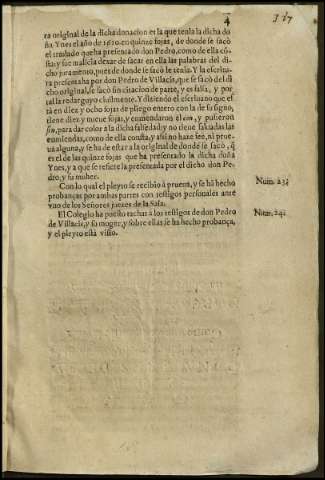 4
317
ra original de la dicha donacion es la que tenia la dicha do
ña Ynes el año de 1610. en quinze fojas, de donde se sacò
el traslado que ha presentado don Pedro, como de ella cõ
sta, y fue malicia dexar de sacar en ella las palabras del di
cho juramento, pues de donde se sacò le tenia. Y la escritu
ra presentada por don Pedro de Villacis, que se sacò del di
cho original, se sacò sin citacion de parte, y es falsa, y por
tal la redarguyo civilmente. Y diziendo el escriuano que es
tà en diez y ocho fojas de pliego entero con la de su signo,
tiene diez y nueue fojas, y enmendaron el con, y pusieron
sin, para dar color a la dicha falsedad, y no tiene saluadas las
enmiendas, como de ella consta, y assi no haze fee, ni prue
ua alguna, y se ha de estar a la original de donde se sacò, q̃
es el de las quinze fojas que ha presentado la dicha doña
Ynes, y a que se refiere la presentada por el dicho don Pe
dro, y su muger.
Con lo qual el pleyto se recibiò a prueua, y se hã hecho
Num. 23.
probanças por ambas partes con testigos personales ante
vno de los Señores juezes de la Sala.
El Colegio ha puesto tachas a los testigos de don Pedro
Num. 24.
de Villacis, y su muger, y sobre ellas se ha hecho probança,
y el pleyto està visto.